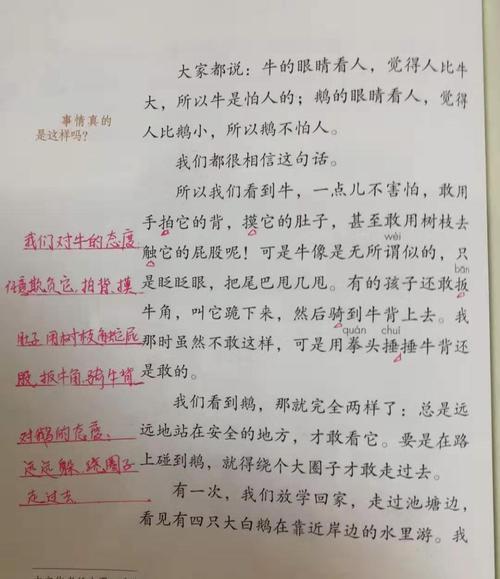 大家都说：牛的眼睛看人，觉得人比牛
大，所以牛是怕人的；鹅的眼睛看人，觉得
人比鹅小，所以鹅不怕人。
事情真的
是这样吗？
我们都很相信这句话。
所以我们看到牛，一点儿不害怕，敢用
手拍它的背，摸它的肚子，甚至敢用树枝去
wèi
触它的屁股呢！可是牛像是无所谓似的，只
bān
是眨眨眼，把尾巴甩几甩。有的孩子还敢扳
牛角，叫它跪下来，然后骑到牛背上去。我
quán chuí
那时虽然不敢这样，可是用拳头捶捶牛背还
是敢的。
我们看到鹅，那就完全两样了：总是远
远地站在安全的地方，才敢看它。要是在路
上碰到鹅，就得绕个大圈子才敢走过去。
有一次，我们放学回家，走过池塘边，
看见有四只大白鹅在靠近岸边的水里游。我
我们对牛的态度
任意欺负它，拍背、摸
肚子 用树枝触屁
股、扳牛角、骑牛背
对鹅的态度：
远远躲、绕圈子
走过去